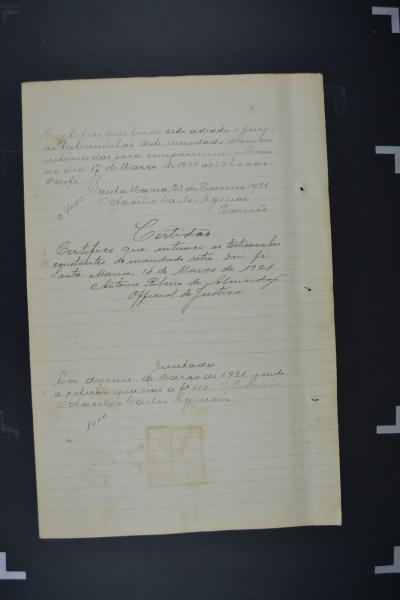 Certifico que tendo sido adiado o Jury,
as testemunhas deste mandado
intimadas para comparecerem
no dia 17 de Março de 1921 as 12 horas.
Dou fé
Santa Maria 23 de Fevereiro 1921
Odacilio Carlos Aguiar
Escrivão
1000
Certidão
Certifico que intimei as testemunhas
constantes do mandado retro. Dou fé
Santa Maria, 14 de Março de 1921
Antonio Ribeiro de Almeida
Official de Justiça
Juntada
Março de 1921 junto
a petição que vae a fl 110. O Escrivão
Odacilio Carlos Aguiar
1000